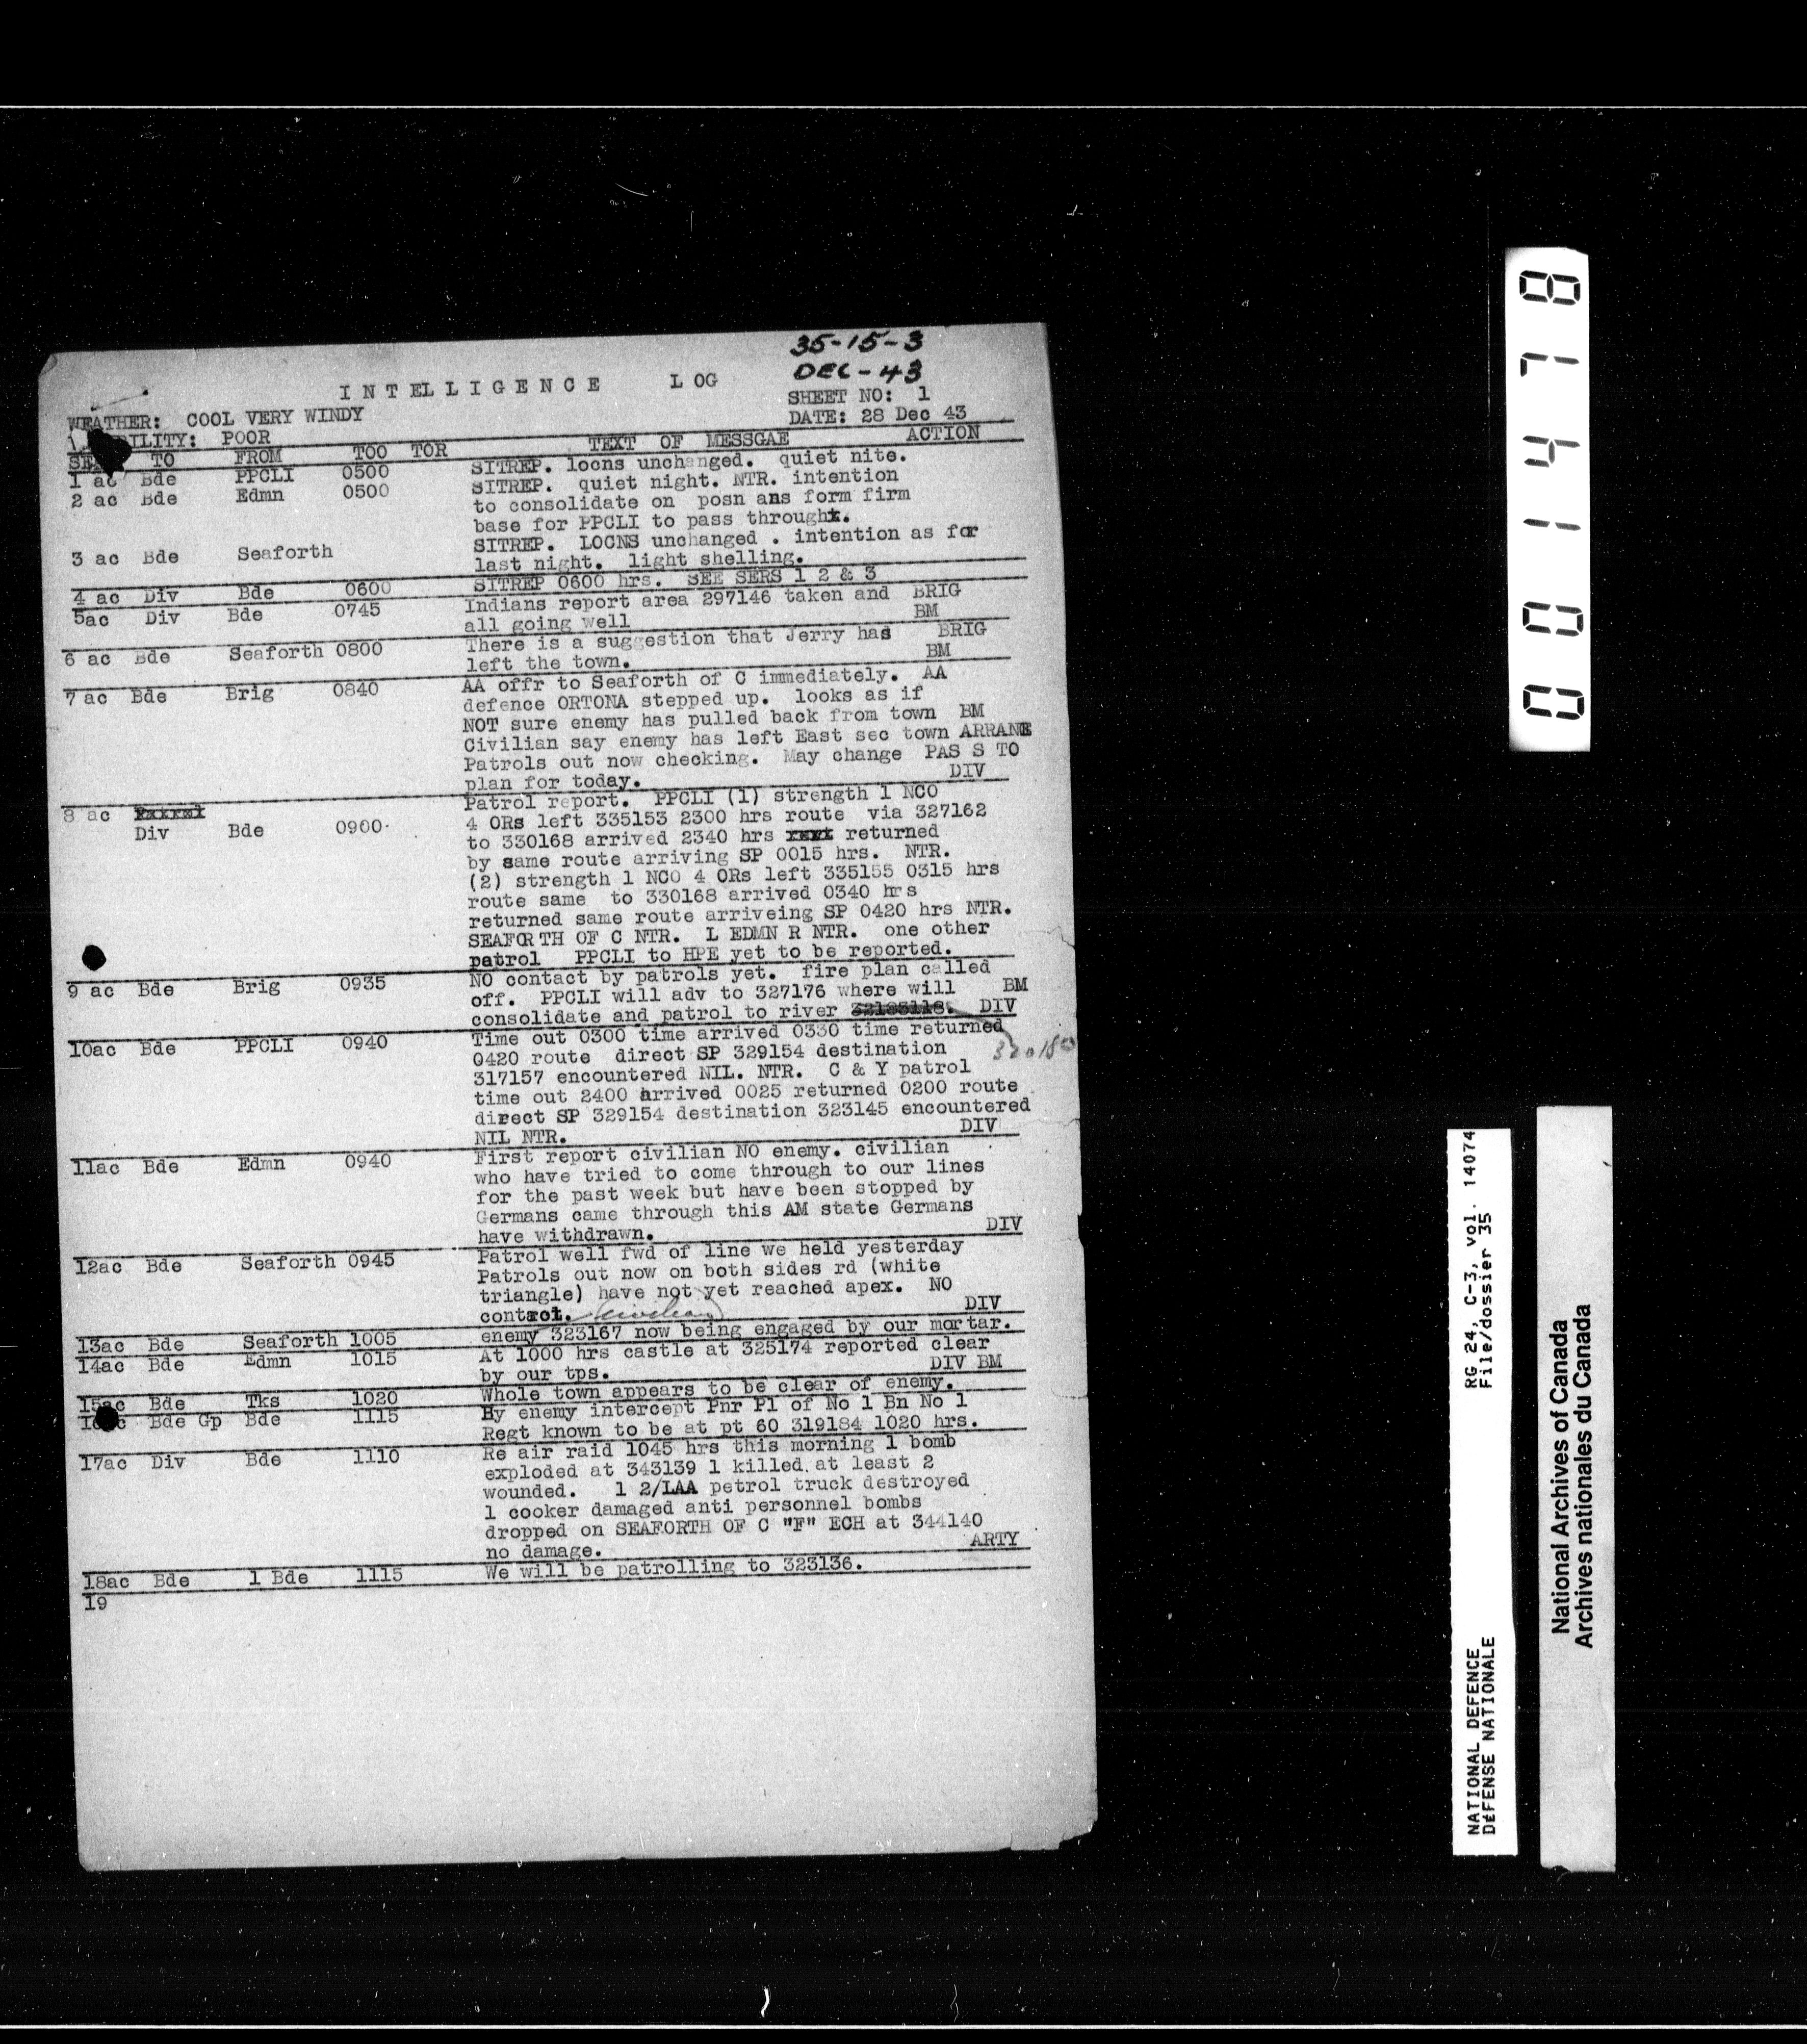 35-15-3
DEC-43
INTELLIGENCE LOG
SHEET NO: 1
WEATHER: COOL VERY WINDY
DATE: 28 Dec 43
BILITY: POOR
SE TO FROM TOO TOR TEXT OF MESSGAE ACTION
1 ac Bde PPCLI 0500 SITREP. locns unchanged. quiet nite.
2 ac Bde Edmn 0500 SITREP. quiet night. NTR. intention
to consolidate on posn ans form firm
base for PPCLI to pass through.
3 ac Bde Seaforth SITREP. LOCNS unchanged . intention as for
last night. light shelling.
4 ac Div Bde 0600 SITREP 0600 hrs. SEE SERS 1 2 & 3
5ac Div Bde 0745 Indians report area 297146 taken and BRIG
all going well BM
6 ac Bde Seaforth 0800 There is a suggestion that Jerry has BRIG
left the town. BM
7 ac Bde Brig 0840 AA offr to Seaforth of C immediately. AA
defence ORTONA stepped up. looks as if
NOT sure enemy has pulled back from town BM
Civilian say enemy has left East sec town ARRANE
Patrols out now checking. May change PAS S TO
plan for today. DIV
8 ac Patrol report. PPCLI (1) strength 1 NCO
Div Bde 0900 4 ORs left 335153 2300 hrs route via 327162
to 330168 arrived 2340 hrs returned
by same route arriving SP 0015 hrs. NTR.
(2) strength 1 NCO 4 ORs left 335155 0315 hrs
route same to 330168 arrived 0340 hrs
returned same route arriveing SP 0420 hrs NTR.
SEAFORTH OF C NTR. L EDMN R NTR. one other
patrol PPCLI to HPE yet to be reported.
9 ac Bde Brig 0935 NO contact by patrols yet. fire plan called
off. PPCLI will adv to 327176 where will BM
consolidate and patrol to river DIV
10ac Bde PPCLI 0940 Time out 0300 time arrived 0330 time returned
0420 route direct SP 329154 destination
317157 encountered NIL. NTR. C & Y patrol
time out 2400 arrived 0025 returned 0200 route
direct SP 329154 destination 323145 encountered
NIL NTR. DIV
11ac Bde Edmn 0940 First report civilian NO enemy. civilian
who have tried to come through to our lines
for the past week but have been stopped by
Germans came through this AM state Germans
have withdrawn. DIV
12ac Bde Seaforth 0945 Patrol well fwd of line we held yesterday
Patrols out now on both sides rd (white
triangle) have not yet reached apex. NO
DIV
13ac Bde Seaforth 1005 enemy 323167 now being engaged by our mortar.
14ac Bde Edmn 1015 At 1000 hrs castle at 325174 reported clear
by our tps. DIV BM
15ac Bde Tks 1020 Whole town appears to be clear of enemy.
Bde Gp Bde 1115 By enemy intercept Pnr Pl of No 1 Bn No 1
Regt known to be at pt 60 319184 1020 hrs.
17ac Div Bde 1110 Re air raid 1045 hrs this morning 1 bomb
exploded at 343139 1 killed. at least 2
wounded. 1 2/LAA petrol truck destroyed
1 cooker damaged anti personnel bombs
dropped on SEAFORTH OF C "F" ECH at 344140
no damage. ARTY
18ac Bde 1 Bde 1115 We will be patrolling to 323136.
19
001478
RG 24, C-3, vol. 14074
File/dossier 35
NATIONAL DEFENCE
DÉFENSE NATIONALE
National Archives of Canada
Archives nationales du Canada